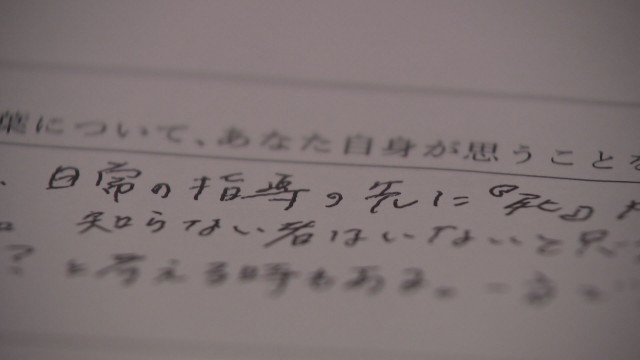 葉について、あなた自身が思うことを
日常の指導の先に『死』
知らない者はいないと思
?と考える時もある。